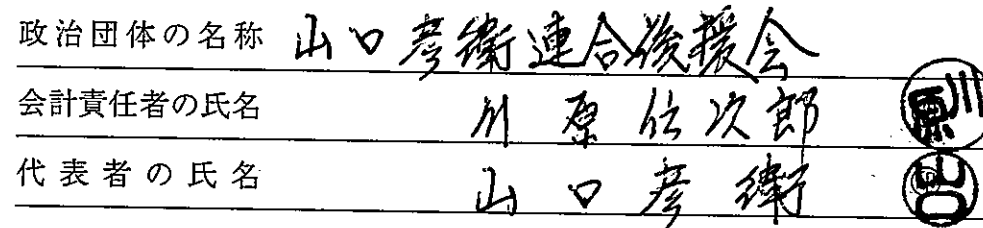 政治団体の名称 山口彦衛連合後援会
会計責任者の氏名 川原伝次郎 川原
代表者の氏名 山口彦衛 山口